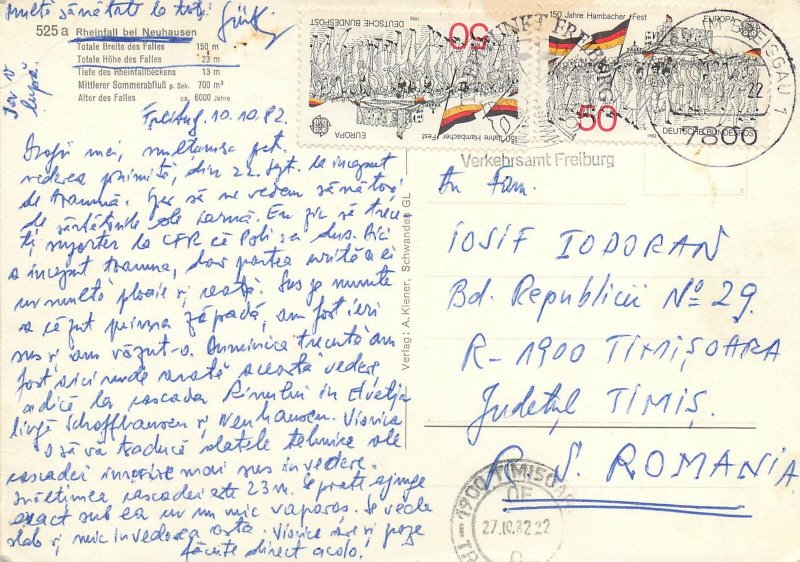 multă sănătate la toți
525 a Rheinfall bei Neuhausen
Totale Breite des Falles 150 m
Totale Höhe des Falles 23 m
Tiefe des Rheinfallbeckens 13 m
Mittlerer Sommerabfluß p. Sek. 700 m³
Alter des Falles ca. 6000 Jahre
Freiburg, 10.10.82
Dragii mei, mulțumesc pt.
vederea primită, din 22 sept. la început
de toamnă. Sper să ne vedem sănătoși
de sărbătorile de iarnă.
la CFR că Poli s-a dus. Aici
a început toamna, dar partea urîtă a ei
cu multă ploaie și ceață. Sus pe munte
a căzut prima zăpadă, am fost ieri
sus și am văzut-o. Duminica trecută am
fost aici unde arată această vedere
adică la cascada Rinului în Elveția
lîngă Schaffhausen și Neuhausen. Viorica
o să vă traducă datele tehnice ale
cascadei înscrise mai sus în vedere.
Înălțimea cascadei este 23 m. Se poate ajunge
exact sub ea cu un mic vaporaș. Se vede
slab și mic în vederea asta. Viorica are și poze
făcute direct acolo.
Verlag: A. Kiener, Schwanden GL
DEUTSCHE BUNDESPOST
50
EUROPA
150 Jahre Hambacher Fest
1982
150 Jahre Hambacher Fest
EUROPA
50
DEUTSCHE BUNDESPOST
1982
FREIBURG
IM BREISGAU 1
22
7800
Verkehrsamt Freiburg
Fam.
IOSIF IODORAN
Bd. Republicii No 29.
R-1900 TIMIȘOARA
Județul TIMIȘ.
R. S. ROMANIA
1900 TIMISOARA
27.10.82.22